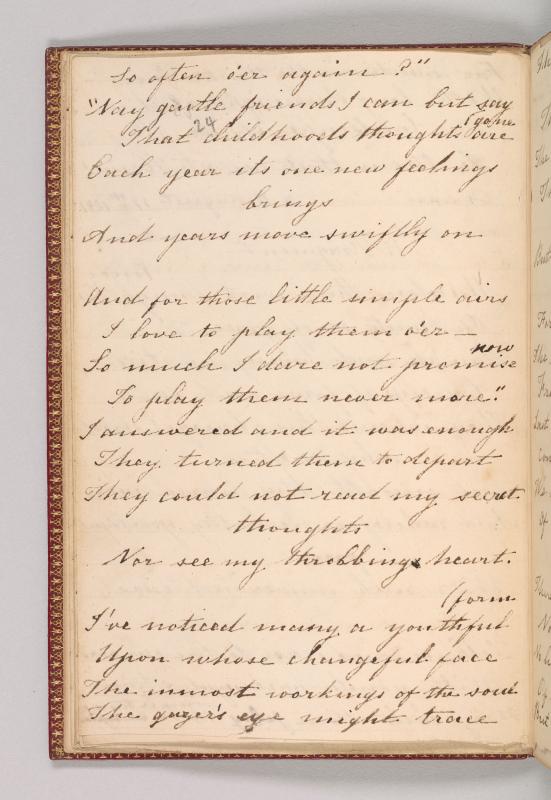 So often o'er again?"
"Nay gentle friends I can but say
That childhood's thoughts are
(gone
24
Each year its one new feelings
brings
And years move swiftly on
And for those little simple airs
I love to play them o'er —
So much I dare not promise
now
To play them never more."
I answered and it was enough
They turned them to depart
They could not read my secret
thoughts
Nor see my throbbing heart.
(form
I've noticed many a youthful
Upon whose changeful face
The inmost workings of the soul
The gazer's eye might trace